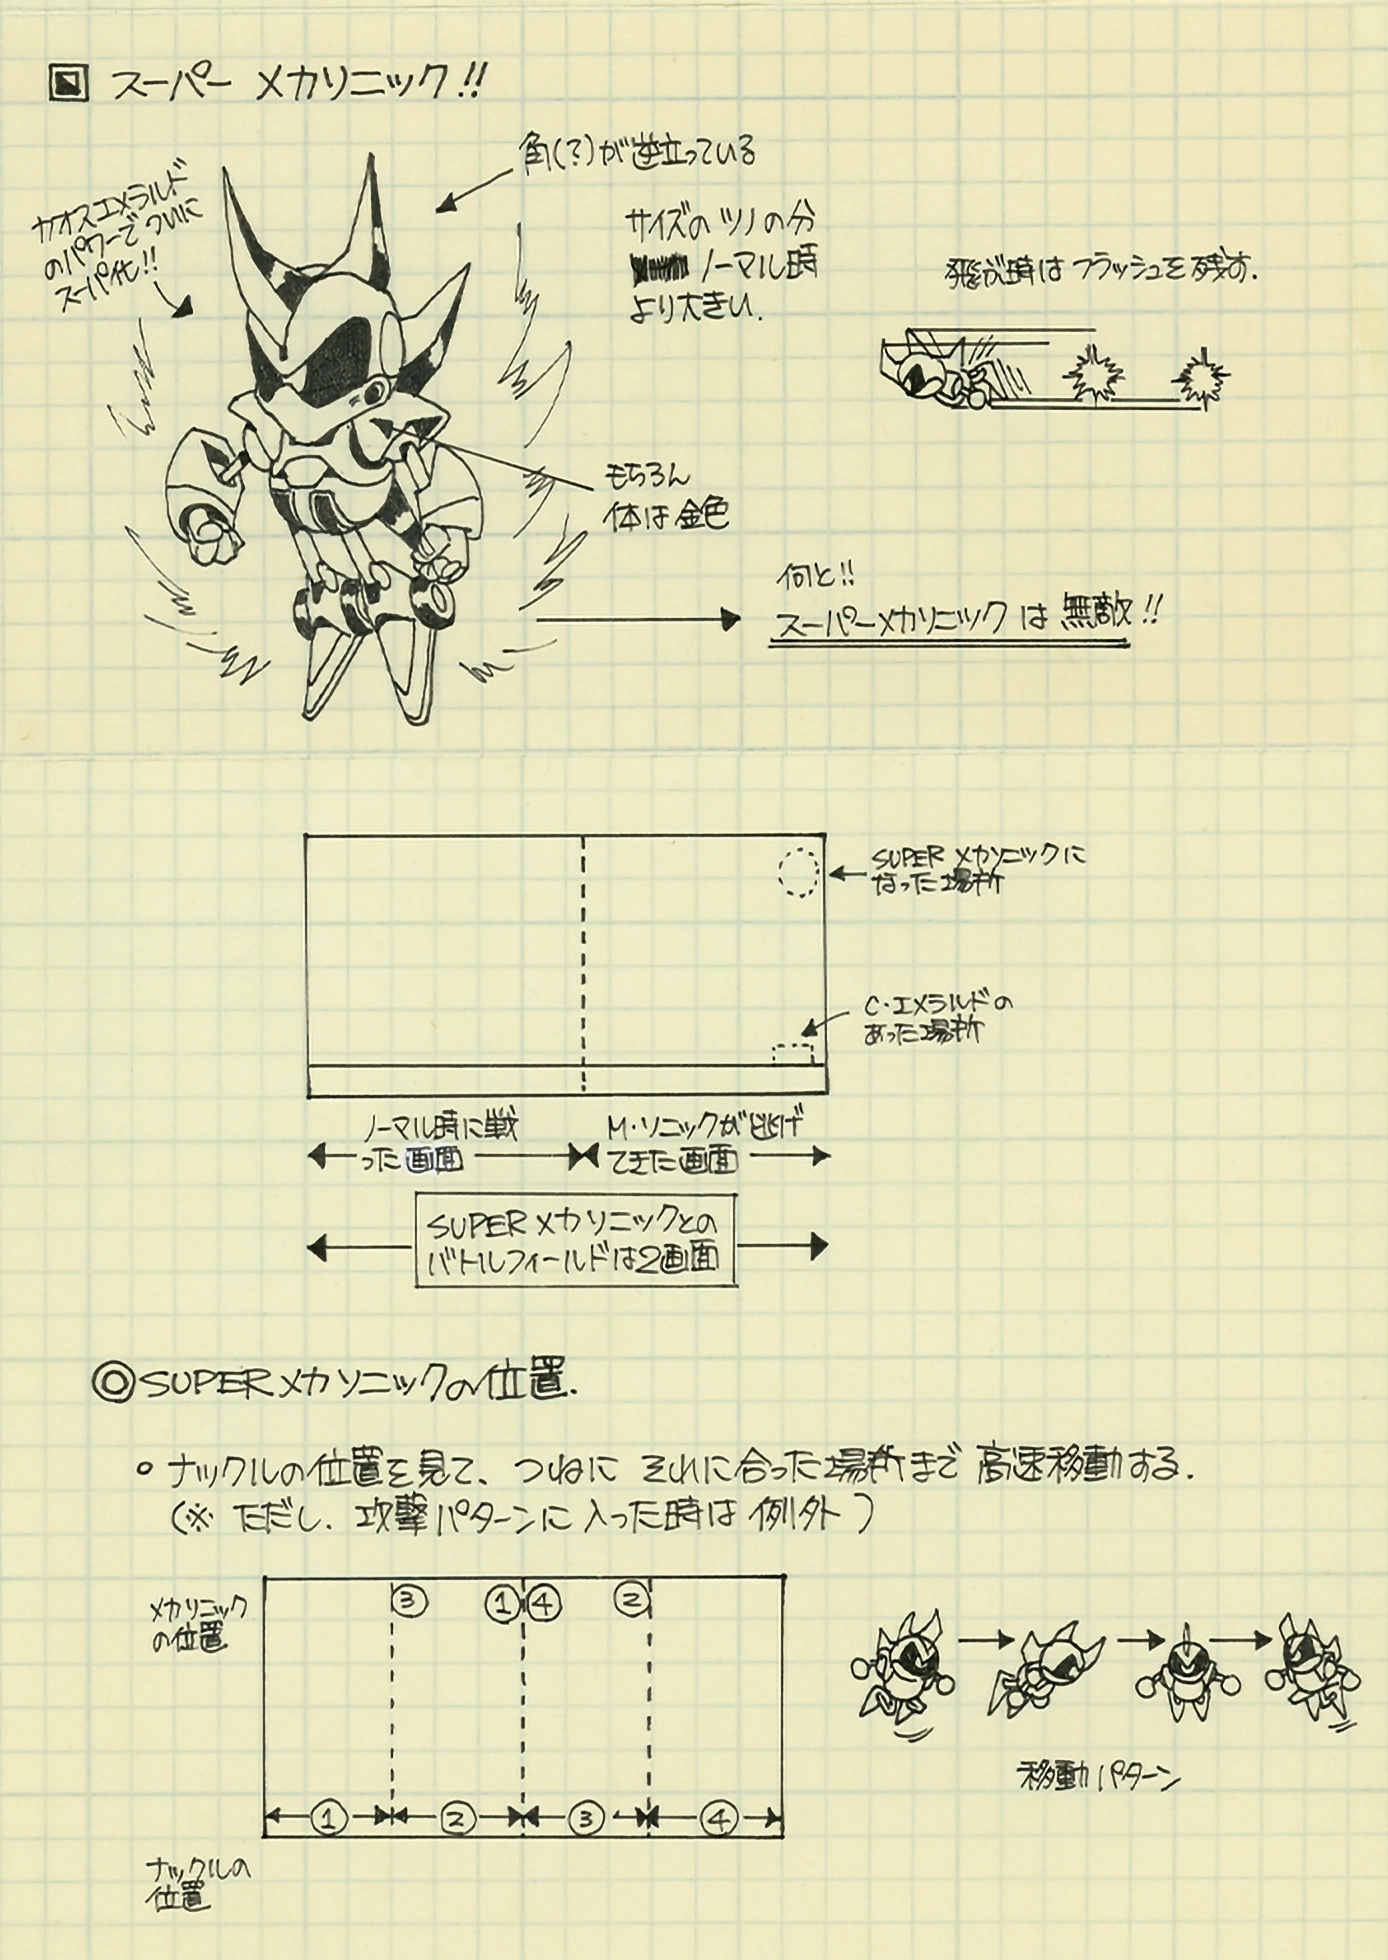 スーパー メカソニック!!
角(?)が逆立っている
カオスエメラルド
のパワーでついに
スーパー化!!
サイズのツノの分
ノーマル時
より大きい.
飛ぶ時はフラッシュを残す.
もちろん
体は金色
何と!!
スーパーメカソニックは無敵!!
SUPER メカソニックに
なった場所
C・エメラルドの
あった場所
ノーマル時に戦
った画面
M・ソニックが逃げ
てきた画面
SUPERメカソニックとの
バトルフィールドは2画面
◎SUPERメカソニックの位置.
○ナックルの位置を見て、つねにそれに合った場所まで高速移動する.
(※ただし、攻撃パターンに入った時は例外)
メカソニック
の位置
③ ① ④ ②
① ② ③ ④
ナックルの
位置
移動パターン